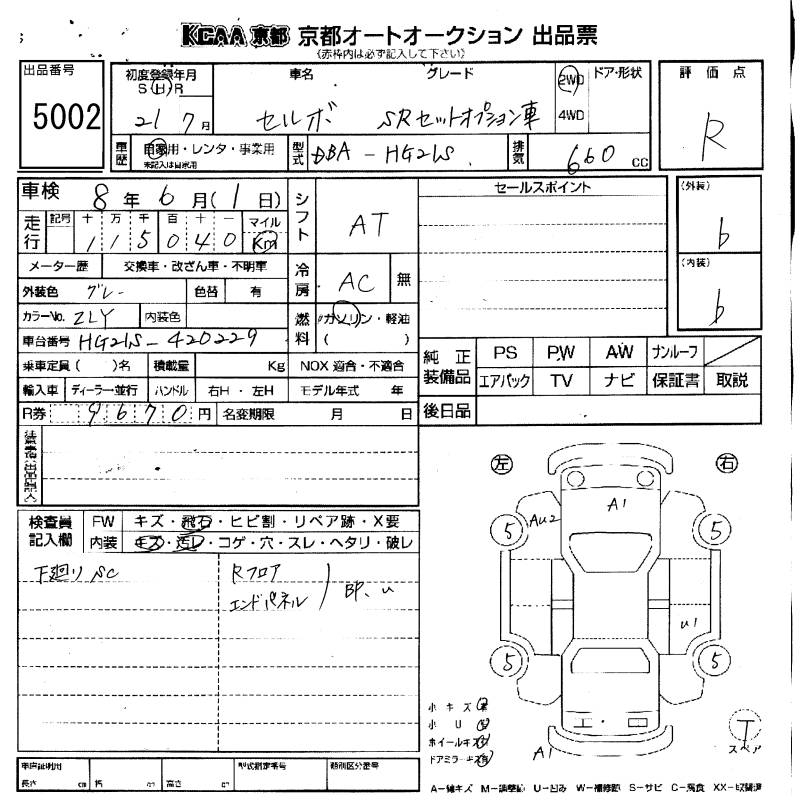 KCAA 京都 京都オートオークション 出品票
(赤枠内は必ず記入して下さい)
出品番号 5002
初度登録年月 S H R 21 7月
車名 セルボ
グレード SRセットオプション車
2WD 4WD ドア・形状
評価点 R
車歴 自家用・レンタ・事業用
未記入は自家用
型式 DBA-HG21S
排気 660 cc
車検 8年6月(1日)
シフト AT
セールスポイント
(外装) b
走行 記号 十万千百十一 マイル Km
115040
(内装) b
メーター歴 交換車・改ざん車・不明車
冷房 AC 無
外装色 グレー 色替 有
カラーNo. ZLY 内装色
燃料 ガソリン・軽油 ( )
車台番号 HG21S-420229
乗車定員( )名 積載量 Kg NOX 適合・不適合
純正装備品 PS PW AW サンルーフ
エアバック TV ナビ 保証書 取説
輸入車 ディーラー・並行 ハンドル 右H・左H モデル年式 年
R券 9670円 名変期限 月 日
後日品
左 右
検査員記入欄 FW キズ・飛石・ヒビ割・リペア跡・X要
内装 キズ・汚レ・コゲ・穴・スレ・ヘタリ・破レ
下廻り SC
Rフロア
エンドパネル
BP、u
A1
Au2
5 5
u1
5 5
A1
小キズ 有
小U
ホイールキズ
ドアミラーキズ 有
T
スペア
車庫証明用 型式指定番号 類別区分番号
長さ cm 幅 cm 高さ cm
A-線キズ M-調整跡 U-凹み W-補修跡 S-サビ C-腐食 XX-取替済